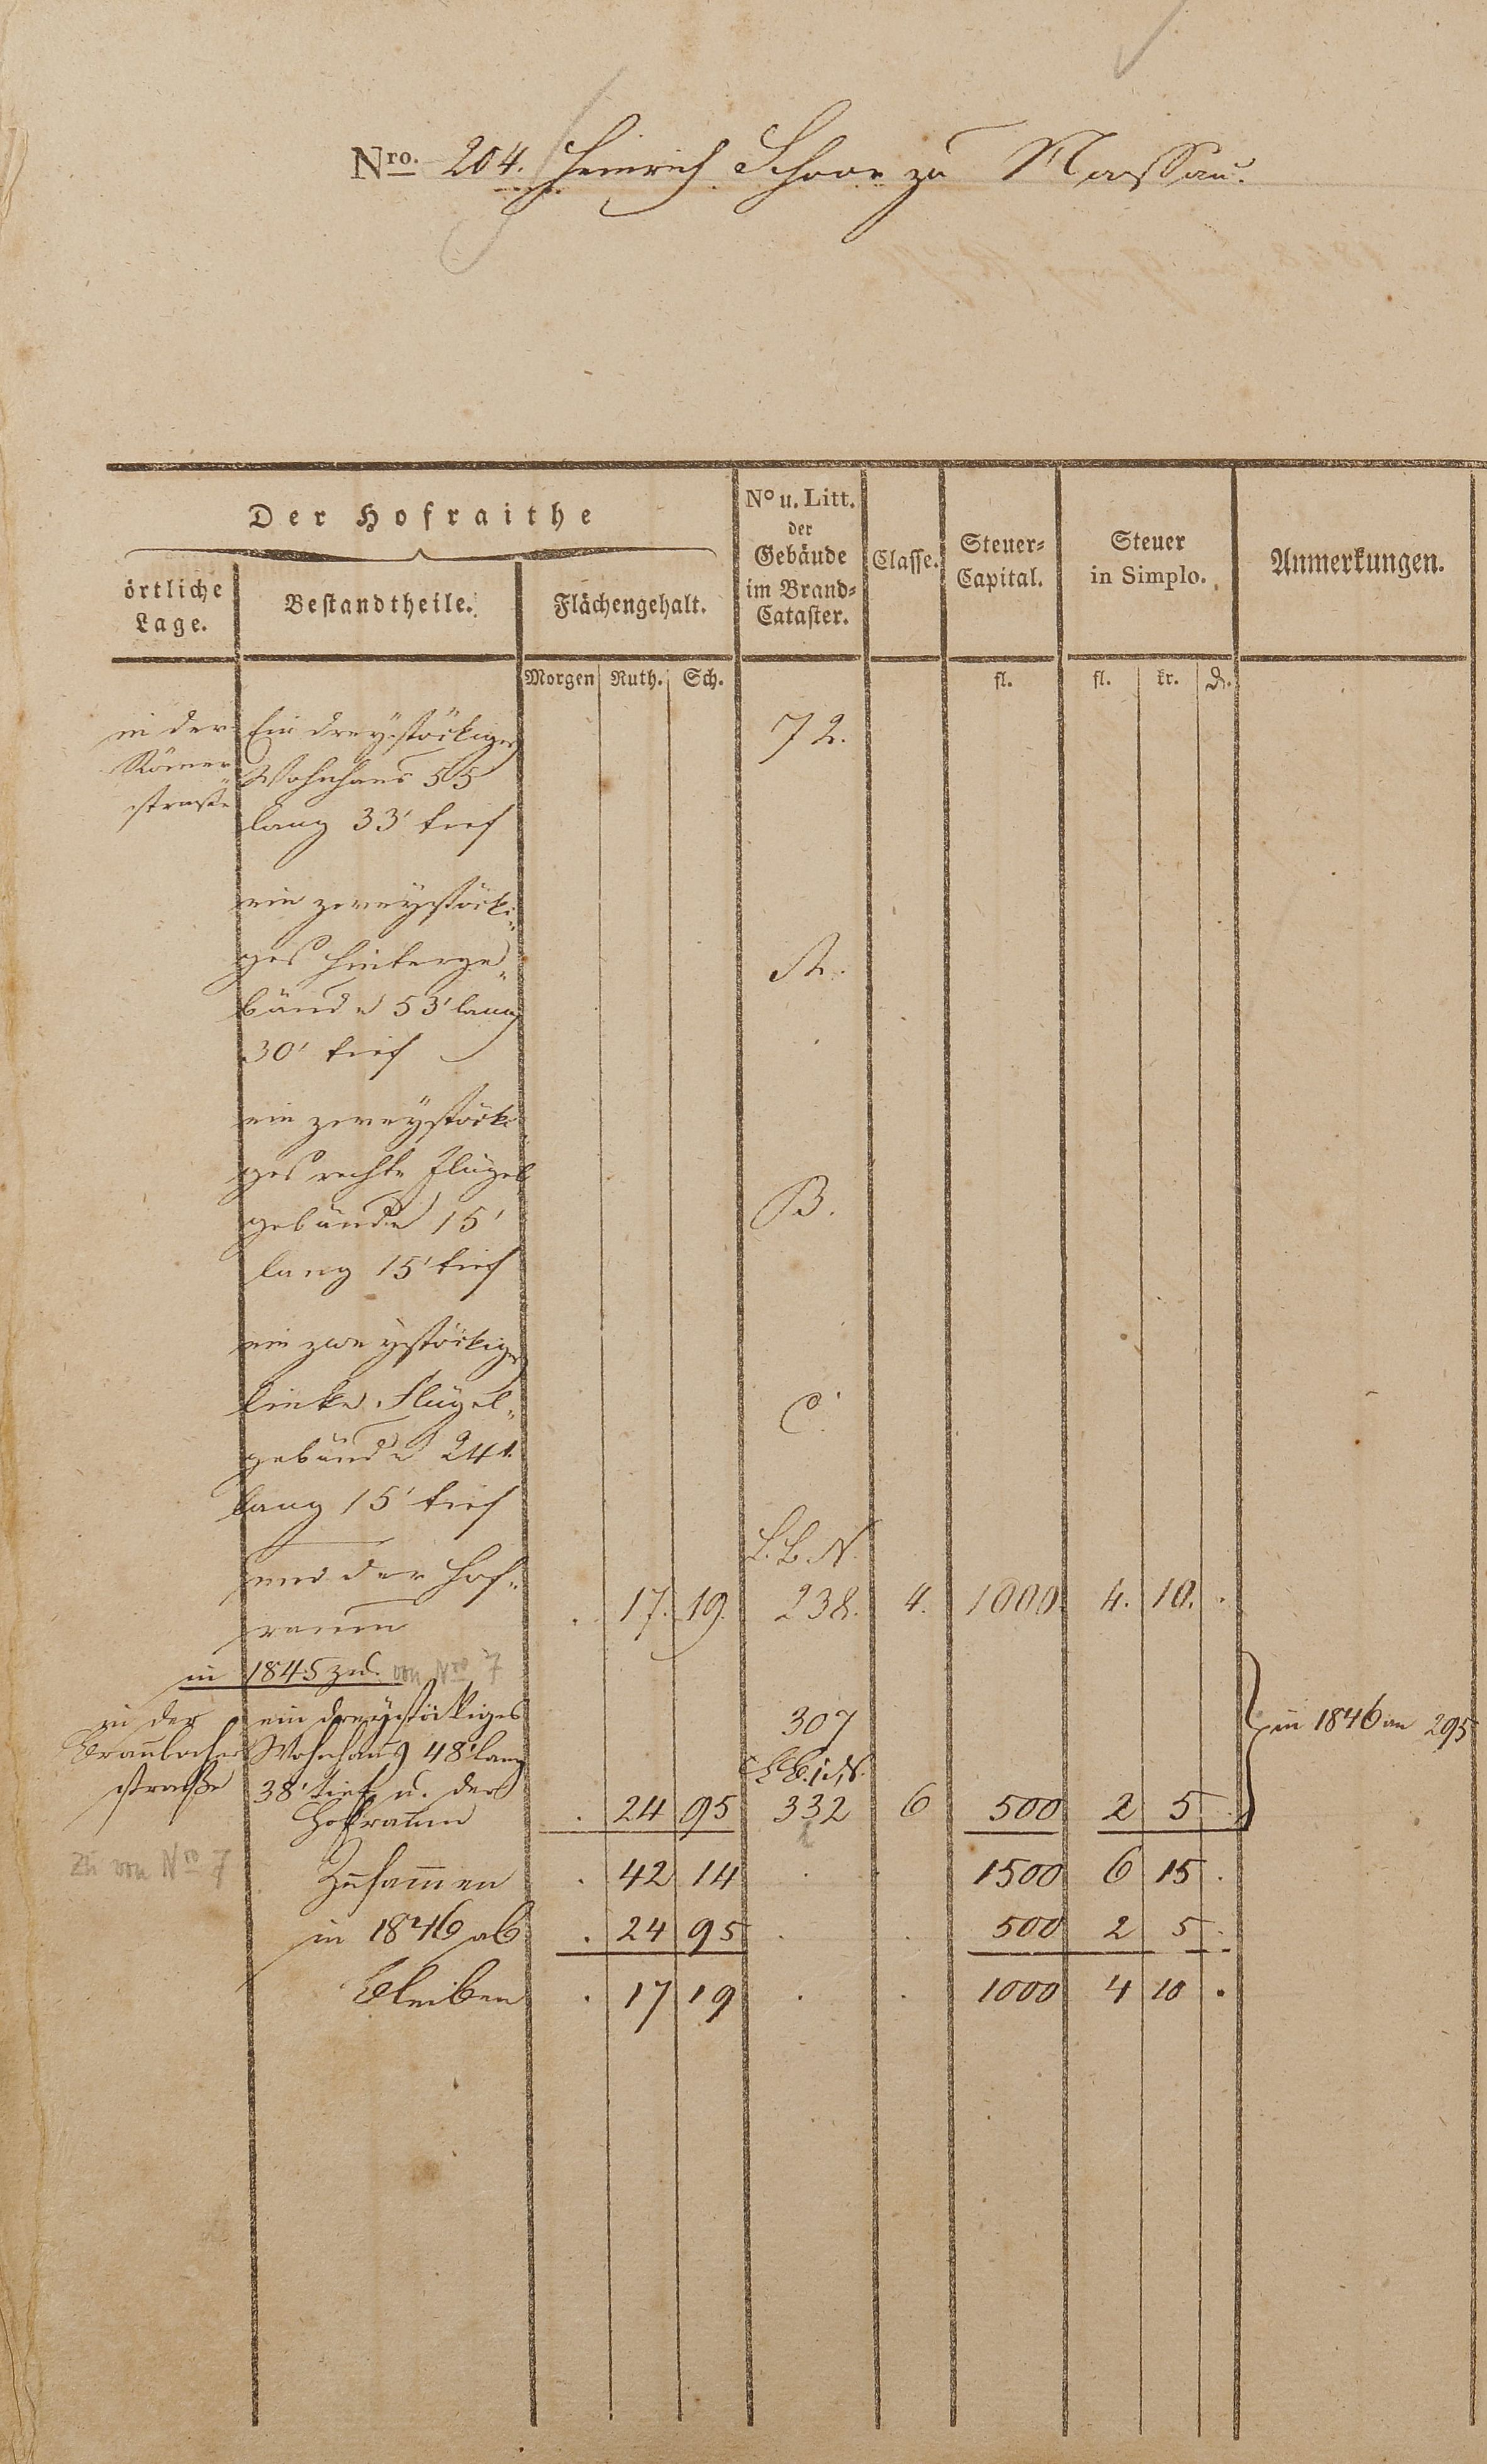 Nro. 204. Heinrich Schoor zu Nassau.
Der Hofraithe
örtliche Lage.
Bestandtheile.
Flächengehalt.
No u. Litt. der Gebäude im Brand-Cataster.
Classe.
Steuer-Capital.
Steuer in Simplo.
Anmerkungen.
Morgen Ruth. Sch. fl. fl. kr. d.
in der Ein dreystöckiges 72.
Römer Wohnhaus 55
straße lang 33' tief
ein zweystöcki-
ges Hinterge- A.
bäude 53' lang
30' tief
ein zweystöcki-
ges rechte Flügel
gebäude 15' B.
lang 15' tief
ein zweystöckiges
linke Flügel- C.
gebäude 24'
lang 15' tief
L. B. N.
und der Hof-
raum . 17. 19. 238. 4. 1000 4. 10. .
in 1845 zu. von Nro 7
in der ein dreystöckiges 307 in 1846 an 295
Braubacher Wohnhaus 48' lang
straße 38' tief u. der
Hofraum . 24 95 332 6 500 2 5 .
Zu von Nro 7
Zusammen . 42 14 . . 1500 6 15 .
in 1846 ab . 24 95 . . 500 2 5 .
Bleiben . 17 19 . . 1000 4 10 .